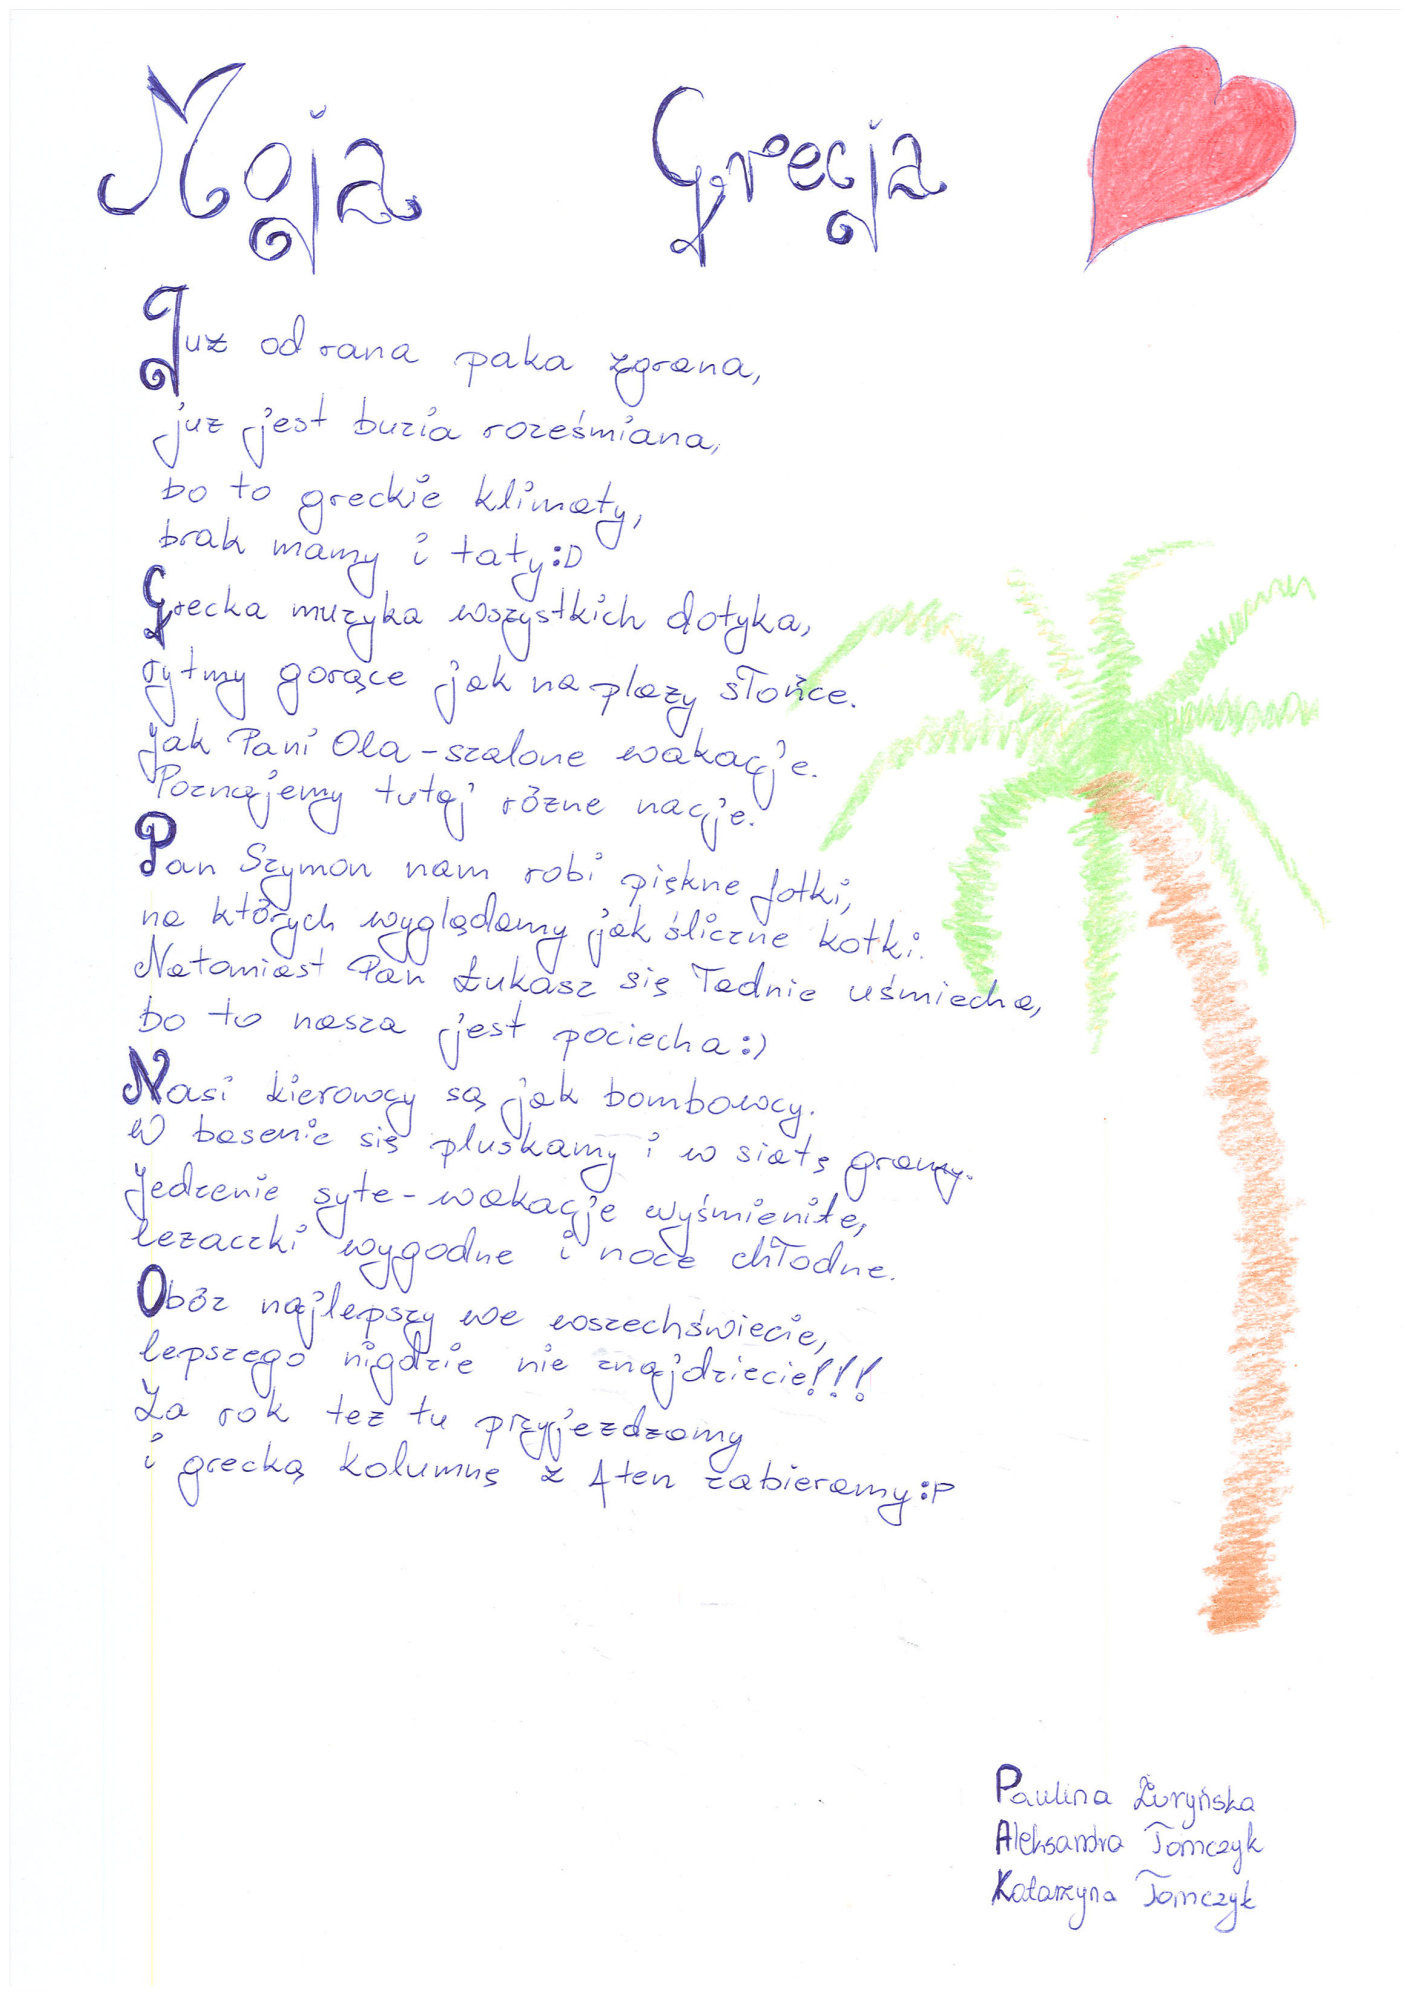 Moja Grecja
Już od rana paka zgrana,
już jest buzia roześmiana,
bo to greckie klimaty,
brak mamy i taty :D
Grecka muzyka wszystkich dotyka,
rytmy gorące jak na plaży słońce.
Jak Pani Ola - szalone wakacje.
Poznajemy tutaj różne nacje.
Pan Szymon nam robi piękne fotki,
na których wyglądamy jak śliczne kotki.
Natomiast Pan Łukasz się ładnie uśmiecha,
bo to nasza jest pociecha :)
Nasi kierowcy są jak bombowcy.
W basenie się pluskamy i w siatę gramy.
Jedzenie syte - wakacje wyśmienite,
leżaczki wygodne i noce chłodne.
Obóz najlepszy we wszechświecie,
lepszego nigdzie nie znajdziecie!!!
Za rok też tu przyjeżdżamy
i grecką kolumnę z Aten zabieramy :P
Paulina Żuryńska
Aleksandra Tomczyk
Katarzyna Tomczyk